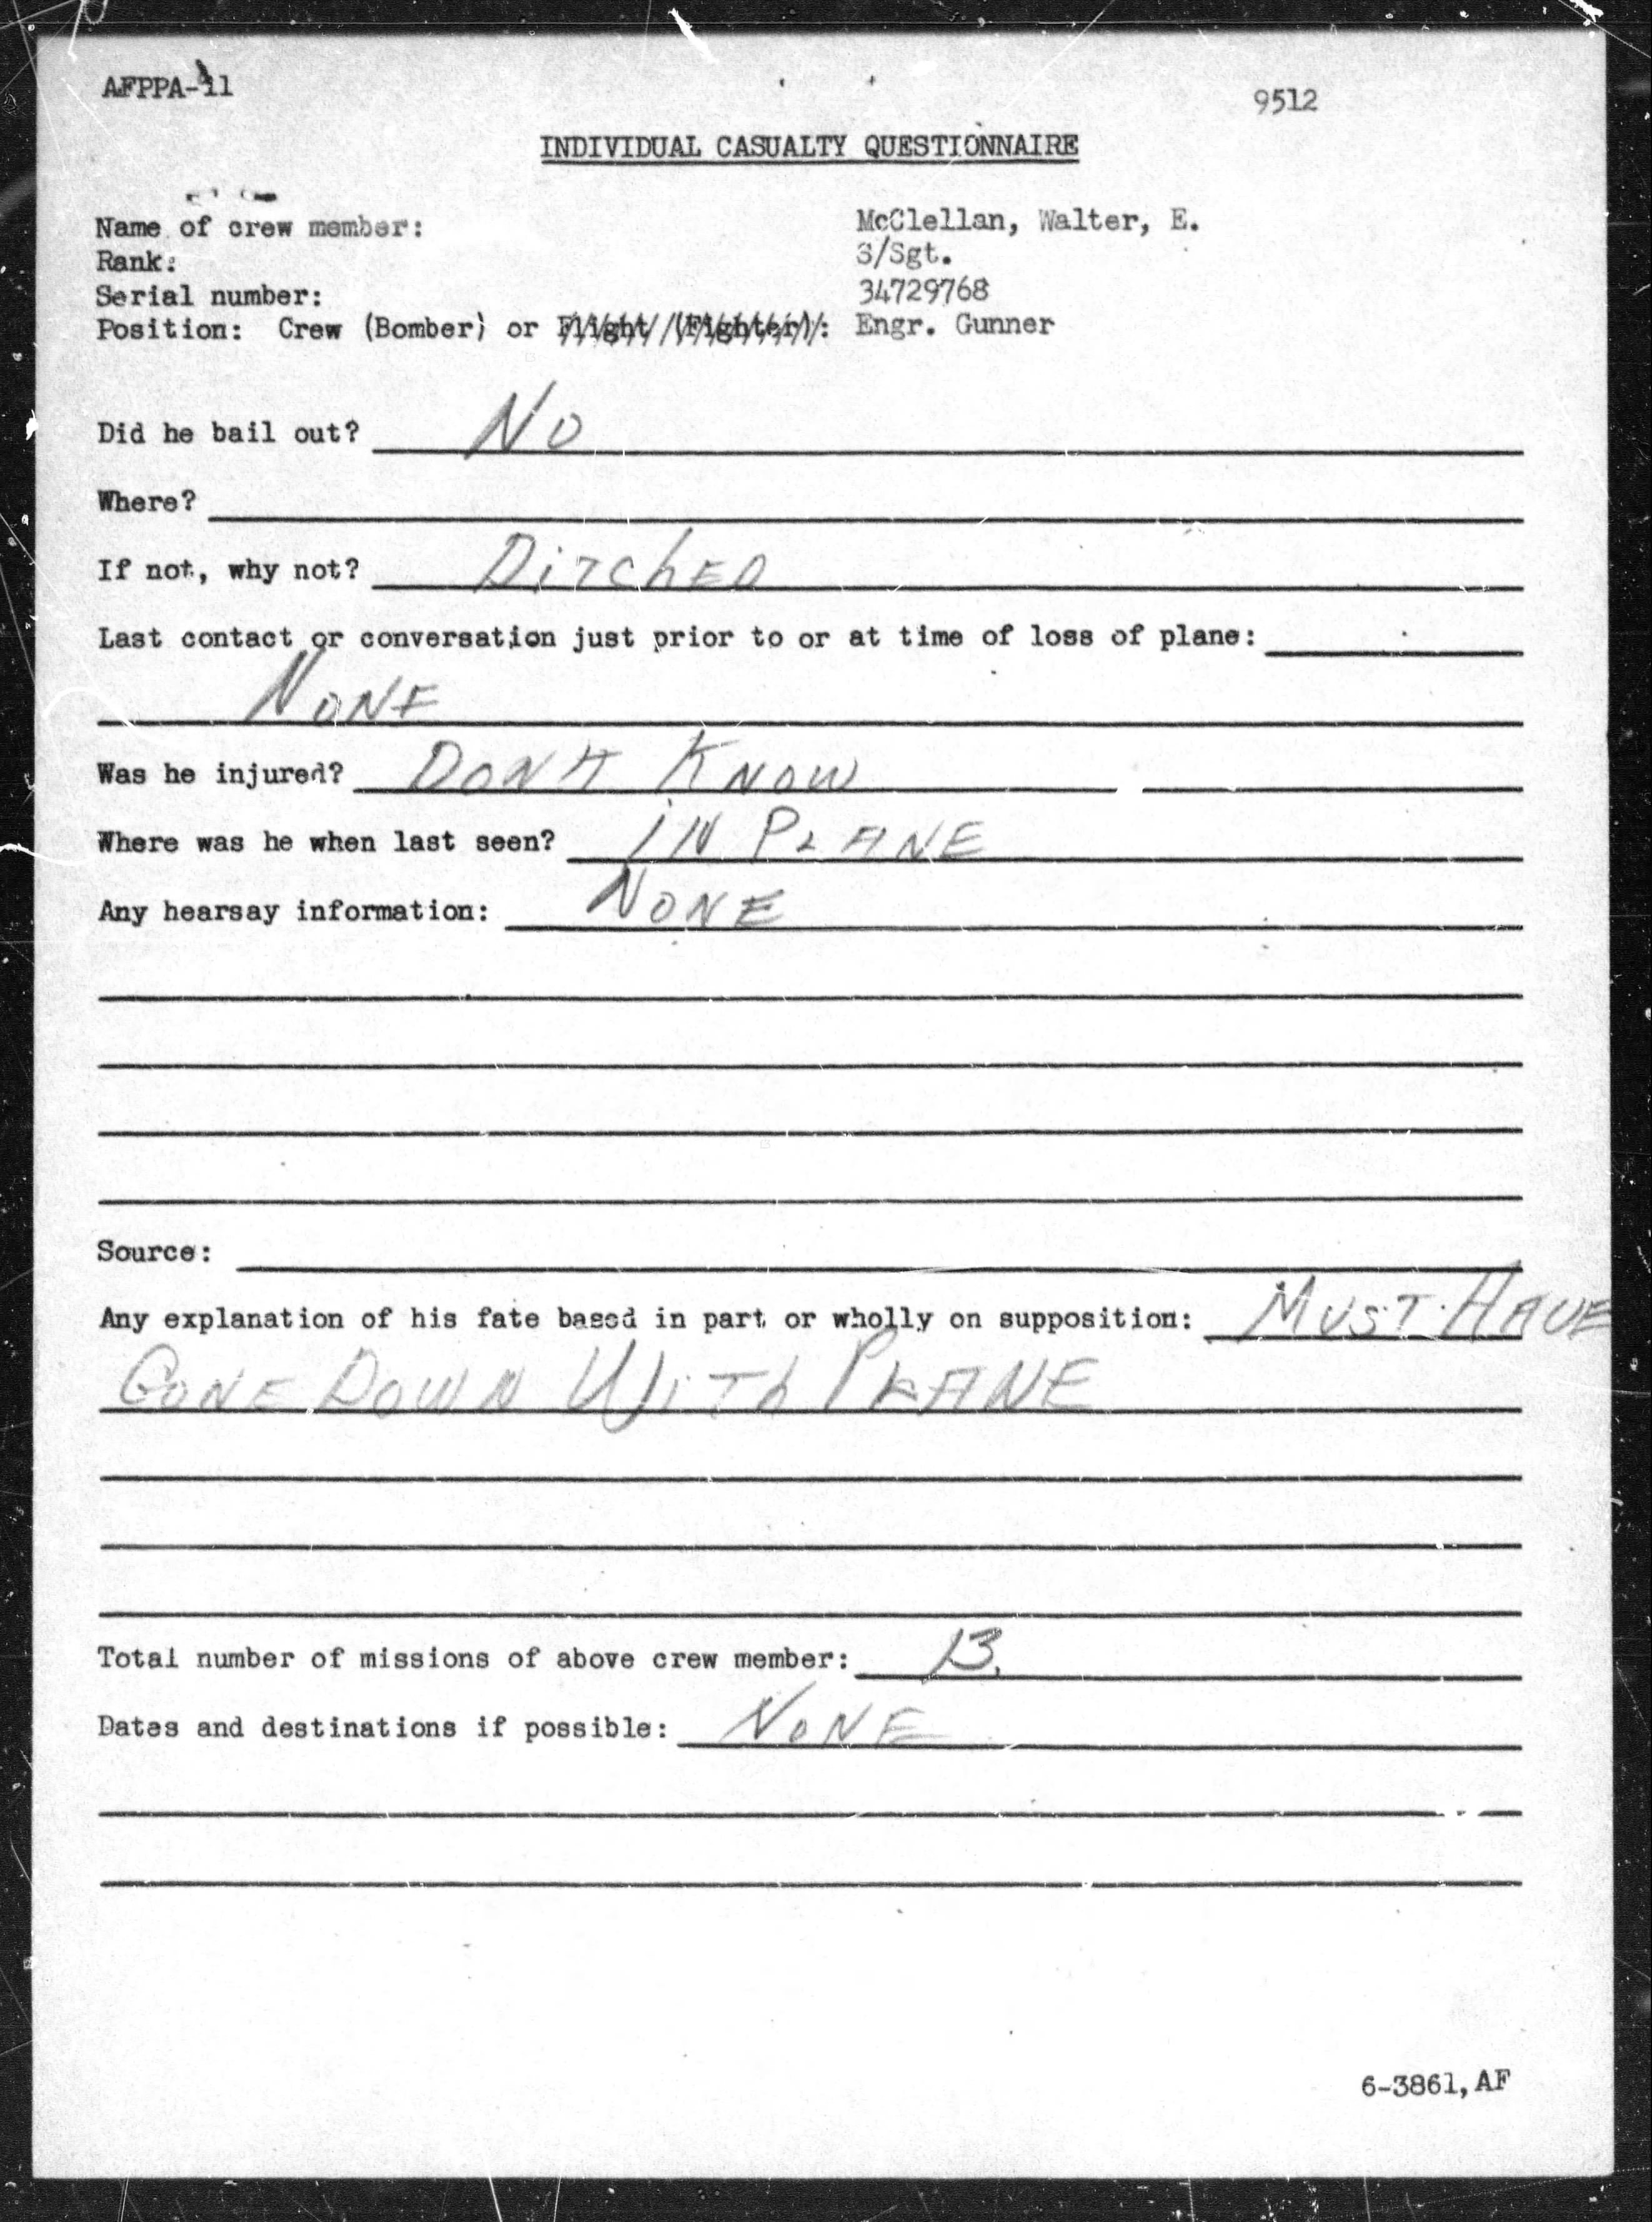 AFPPA-11
9512
INDIVIDUAL CASUALTY QUESTIONNAIRE
Name of crew member: McClellan, Walter, E.
Rank: S/Sgt.
Serial number: 34729768
Position: Crew (Bomber) or Flight (Fighter): Engr. Gunner
Did he bail out? No
Where?
If not, why not? DiTChED
Last contact or conversation just prior to or at time of loss of plane:
NONE
Was he injured? DON'T KNOW
Where was he when last seen? iN PLANE
Any hearsay information: NONE
Source:
Any explanation of his fate based in part or wholly on supposition: MUST HAVE
GONE DOWN WiTh PLANE
Total number of missions of above crew member: 13
Dates and destinations if possible: NONE
6-3861, AF